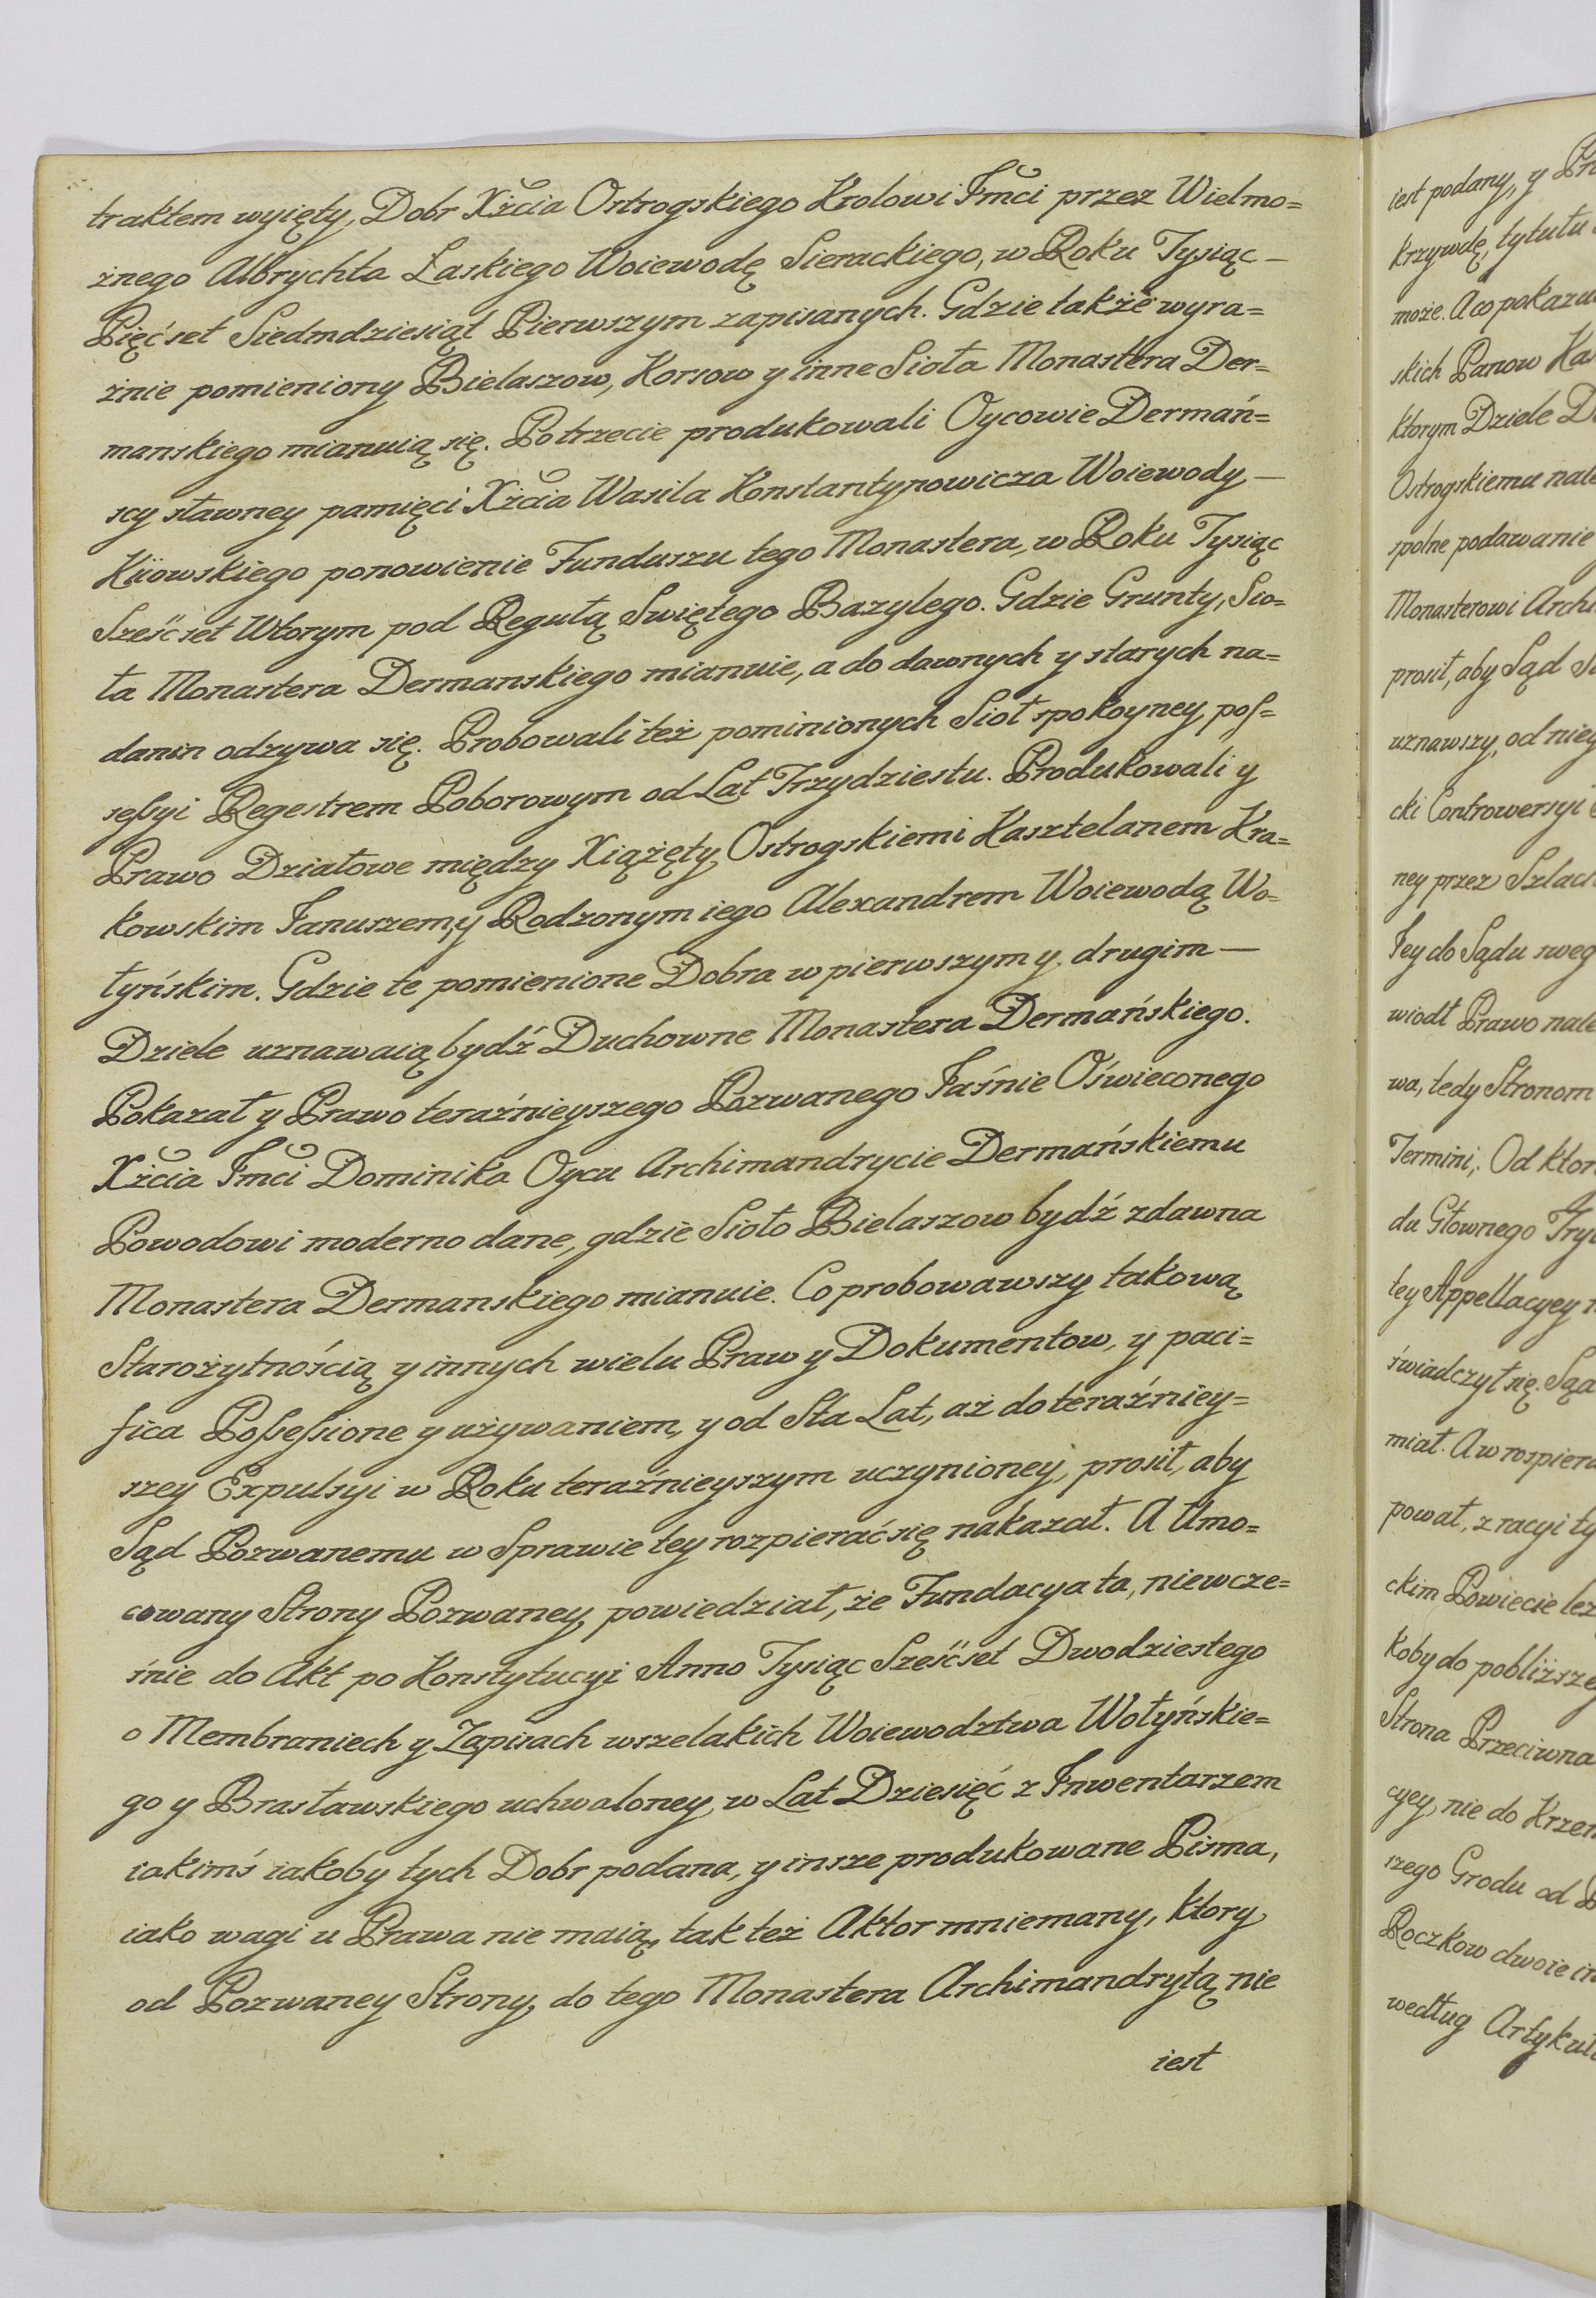 traktem wyięty, Dobr Xżcia Ostrogskiego Krolowi Jmci przez Wielmo=
żnego Albrychta Łaskiego Woiewodę Sierackiego, w Roku Tysiąc —
Pięćset Siedmdziesiąt Pierwszym zapisanych. Gdzie także wyra=
źnie pomieniony Bielaszow, Korsow y inne Sioła Monastera Der=
manskiego mianuią się. Potrzecie produkowali Oycowie Dermań=
scy sławney pamięci Xżcia Wasila Konstantynowicza Woiewody —
Kiiowskiego ponowienie Funduszu tego Monastera, w Roku Tysiąc
Sześćset Wtorym pod Regułą Swiętego Bazylego. Gdzie Grunty, Sio=
ła Monastera Dermanskiego mianuie, a do dawnych y starych na=
danin odzywa się. Probowali też pominionych Sioł spokoyney pos=
sessyi Regestrem Poborowym od Lat Trzydziestu. Produkowali y
Prawo Działowe między Xiążęty Ostrogskiemi Kasztelanem Kra=
kowskim Januszem, y Rodzonym iego Alexandrem Woiewodą Wo=
łyńskim. Gdzie te pomienione Dobra w pierwszym y drugim —
Dziele uznawaią bydź Duchowne Monastera Dermańskiego.
Pokazał y Prawo teraźnieyszego Pozwanego Jaśnie Oświeconego
Xżcia Jmci Dominika Oycu Archimandrycie Dermańskiemu
Powodowi moderno dane, gdzie Sioło Bielaszow bydź zdawna
Monastera Dermanskiego mianuie. Co probowawszy takową
Starożytnością y innych wielu Praw y Dokumentow, y paci=
fica Possessione y używaniem, y od Sta Lat, aż do teraźniey=
szey Expulsyi w Roku teraźnieyszym uczynioney, prosił, aby
Sąd Pozwanemu w Sprawie tey rozpierać się nakazał. A Umo=
cowany Strony Pozwaney, powiedział, że Fundacya ta, niewcze=
śnie do Akt po Konstytucyi Anno Tysiąc Sześćset Dwodziestego
o Membraniech y Zapisach wszelakich Woiewodztwa Wołyńskie=
go y Brasławskiego uchwaloney, w Lat Dziesięć z Inwentarzem
iakimś iakoby tych Dobr podana, y insze produkowane Pisma,
iako wagi u Prawa nie maią, tak też Aktor mniemany, ktory
od Pozwaney Strony, do tego Monastera Archimandrytą nie
iest
iest podany, y
krzywdę, tytułu
może. A co pokazu
skich Panow
ktorym Dziele
Ostrogskiemu
spolne podawanie
Monasterowi
prosił, aby Sąd
uznawszy, od
cki Controwersyi
ney przez
Jey do Sądu
wiodł Prawo
wa, tedy Stronom
Termini; Od
du Głownego
tey Appellacyey
świadczył się.
miał. A w
pował, z racyi
ckim Powiecie
koby do
Strona Przeciwna
cyey, nie do
szego Grodu od
Roczkow dwoie
według